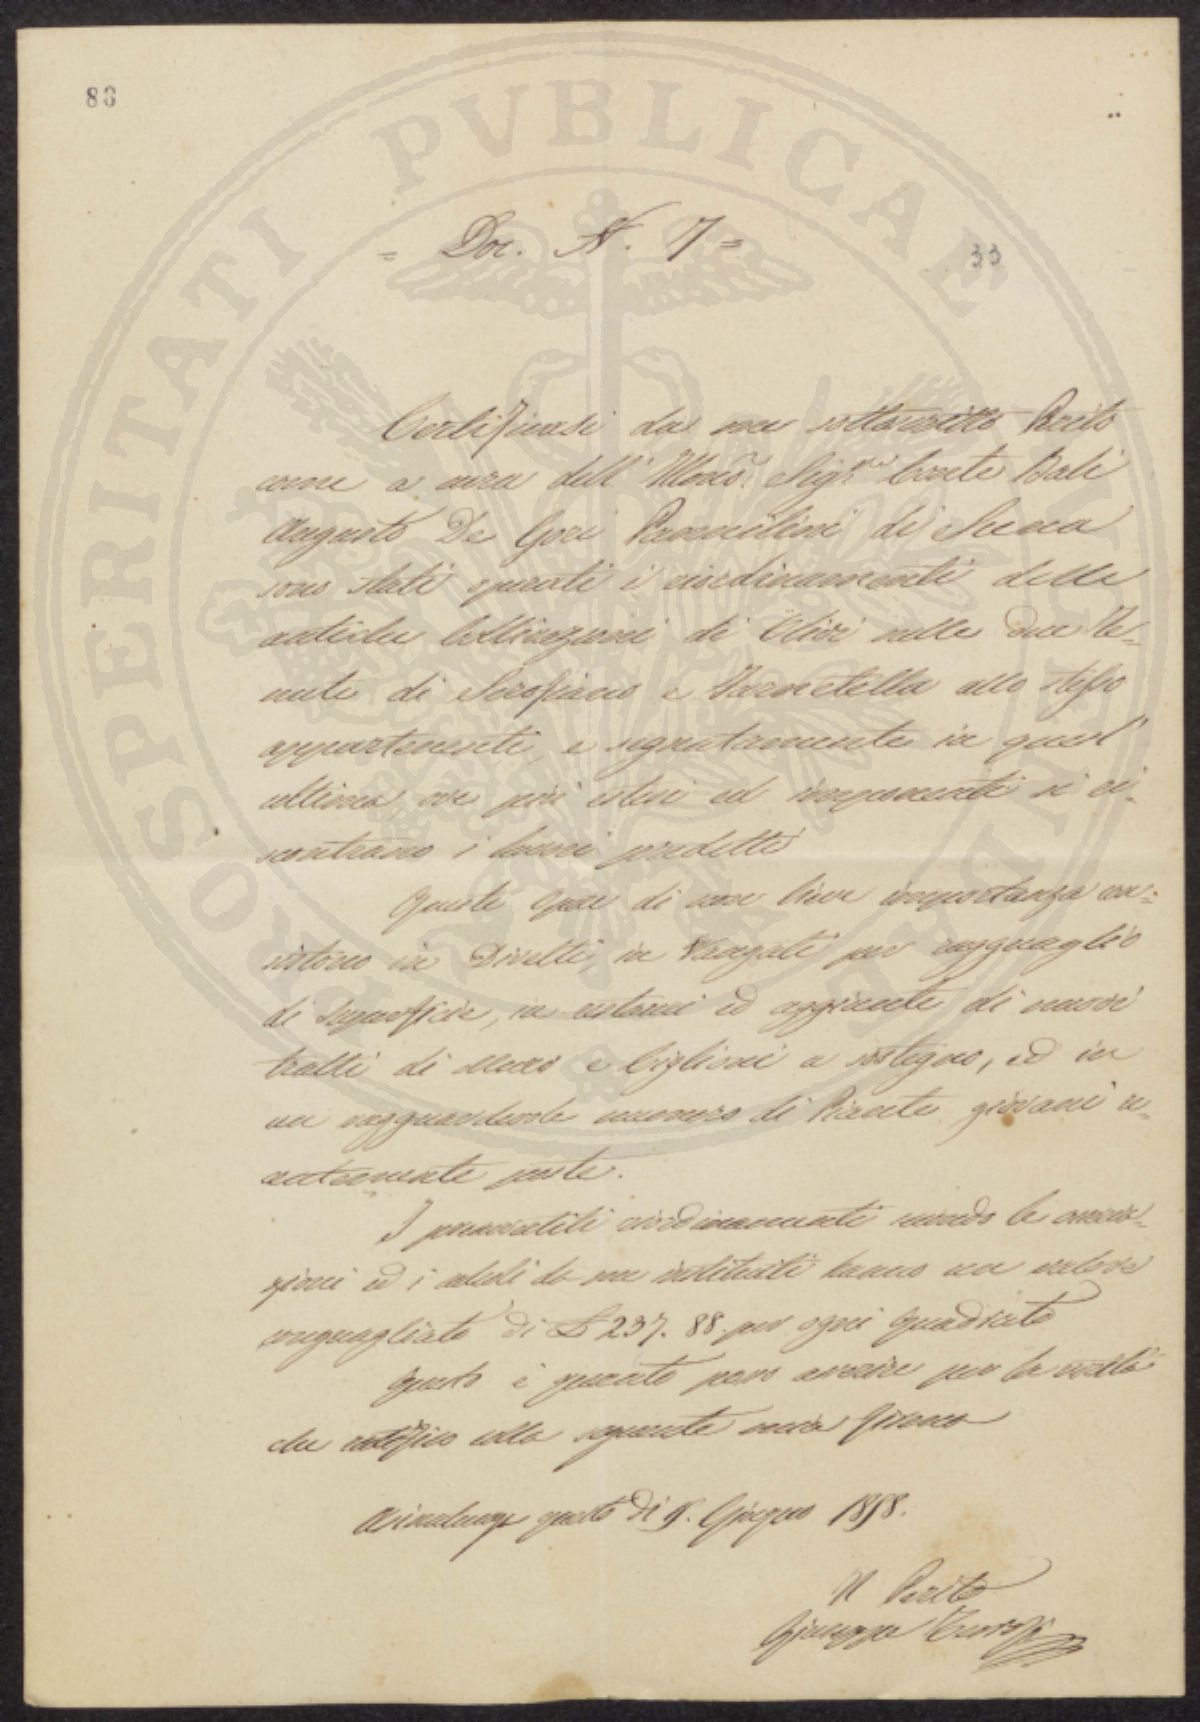 83
= Doc. N. 7 =
33
Certificasi da me sottoscritto Perito
come a cura dell' Illmo. Sigr. Conte Balì
Augusto De Gori Pannilini di Siena
sono stati operati i riordinamenti delle
antiche Coltivazioni di Ulivi nelle due Te-
nute di Scrofiano e Farnetella allo stesso
appartenenti, e segnatamente in quest'
ultima, ove più estesi ed imponenti si ri-
scontrano i lavori predetti
Queste Opere di non lieve importanza con-
sistono in Divelti, in Vangati per ragguaglio
di superficie, in restauri ed aggiunte di nuovi
tratti di Muro e Ciglioni a sostegno, ed in
un ragguardevole numero di Piante giovani re-
centemente poste.
I rammentati riordinamenti secondo le misura-
zioni ed i calcoli da me instituiti hanno un valore
conguagliato di £ 237. 88. per ogni Quadrato
Questo è quanto posso asserire per la verità
che ratifico colla seguente mia firma
Asinalunga questo dì Giugno 1858.
Il Perito
Giuseppe